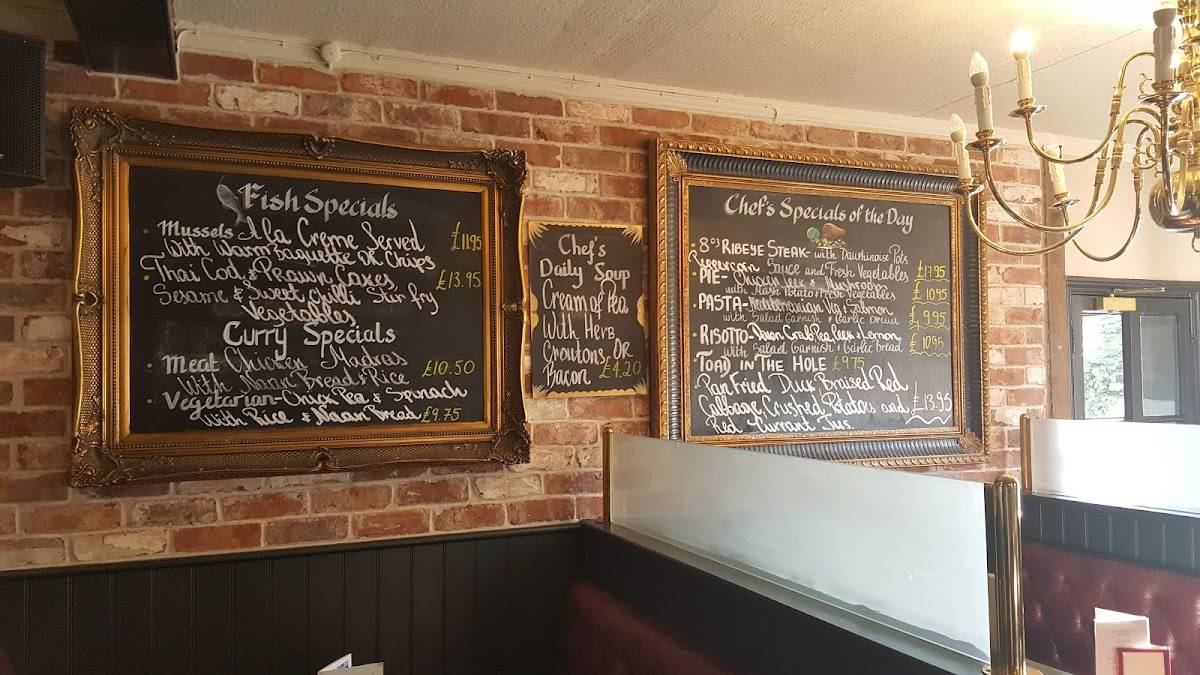 Fish Specials
Mussels A la Creme Served £11.95
With Warm Baguette OR Chips
Thai Cod & Prawn Caxes £13.95
Sesame & Sweet chilli Stir fry
Vegetables
Curry Specials
Meat Chicken Madras £10.50
With Naan Bread & Rice
Vegetarian - Chick Pea & Spinach
With Rice & Naan Bread £9.75
Chef's
Daily Soup
Cream of Pea
With Herb
Croutons OR
Bacon £4.20
Chef's Specials of the Day
8oz RIBEYE STEAK - with Dauphinoise Pots
Peppercorn Sauce and Fresh Vegetables £17.95
PIE - Chicken Leek & Mushroom
with Mash Potato & Fresh Vegetables £10.95
PASTA - Mediterranean Veg & Salmon
with Salad Garnish & Garlic Bread £9.95
RISOTTO - Prawn Crab Pea Leek Lemon
with Salad Garnish & Garlic Bread £10.95
TOAD IN THE HOLE £9.75
Pan Fried Dux Braised Red
Cabbage, Crushed Potatoes and £13.95
Red Currant Jus